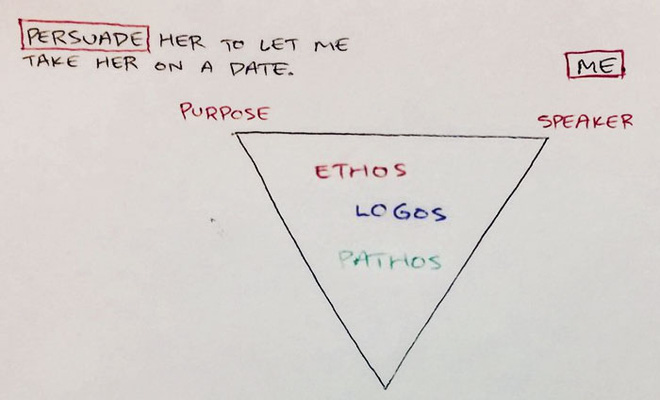 PERSUADE HER TO LET ME
TAKE HER ON A DATE.
ME
PURPOSE
SPEAKER
ETHOS
LOGOS
PATHOS